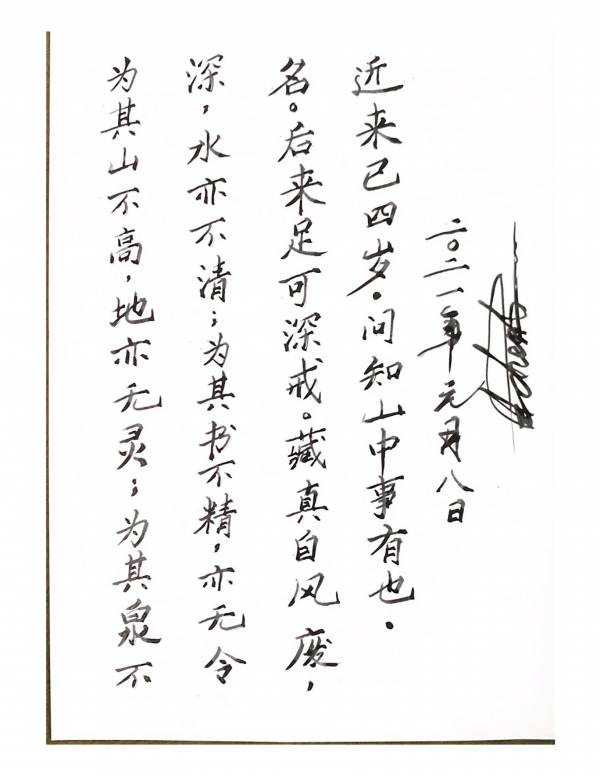 为其山不高，地亦无灵；为其泉不
深，水亦不清；为其书不精，亦无令
名。后来足可深戒。藏真自风废，
近来已四岁。问知山中事有也。
二〇二一年元月八日